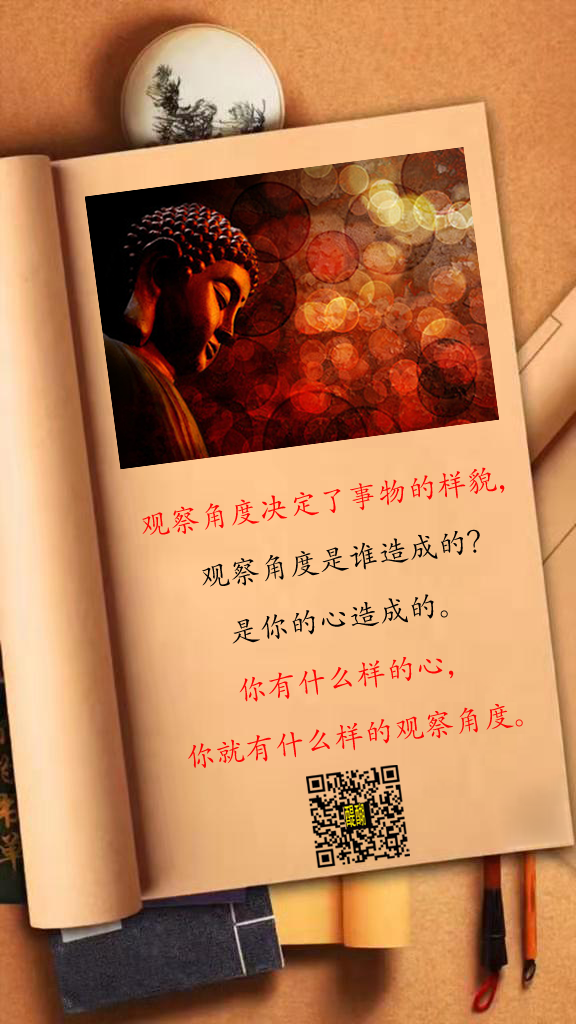 观察角度决定了事物的样貌，
观察角度是谁造成的？
是你的心造成的。
你有什么样的心，
你就有什么样的观察角度。